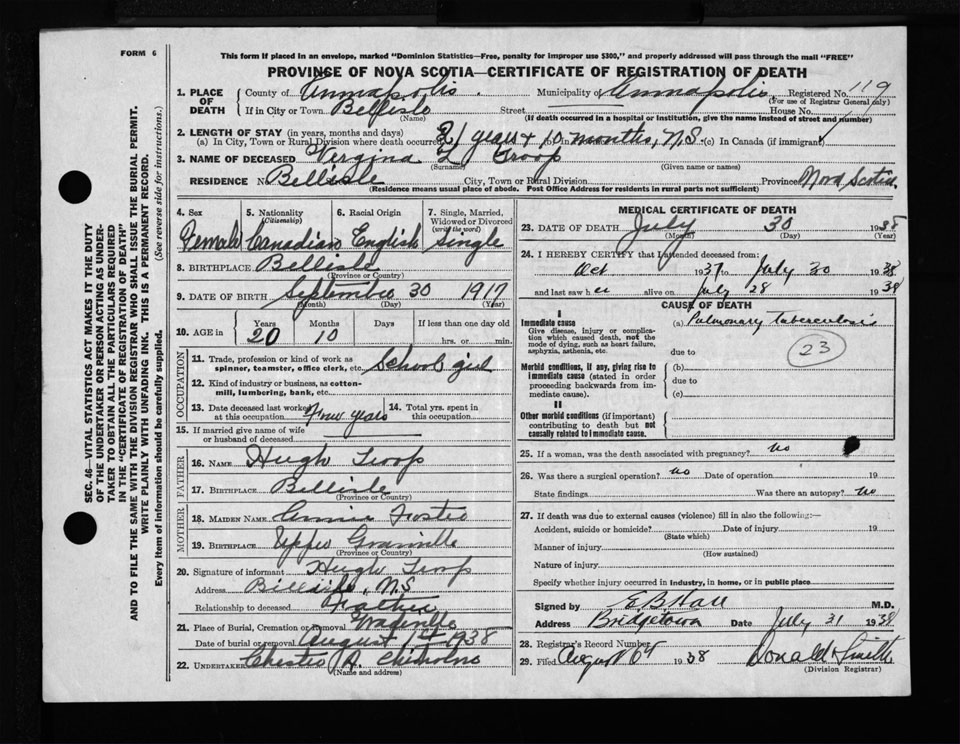 FORM 6
This form if placed in an envelope, marked "Dominion Statistics—Free, penalty for improper use $300," and properly addressed will pass through the mail "FREE"
PROVINCE OF NOVA SCOTIA—CERTIFICATE OF REGISTRATION OF DEATH
1. PLACE OF DEATH County of Annapolis Municipality of Annapolis Registered No. 119
(For use of Registrar General only)
If in City or Town Bellisle Street House No.
(Name) (If death occurred in a hospital or institution, give the name instead of street and number)
2. LENGTH OF STAY (in years, months and days)
(a) In City, Town or Rural Division where death occurred years & 10 months, N.S. (c) In Canada (if immigrant)
3. NAME OF DECEASED Vergina Troop
(Surname) (Given name or names)
RESIDENCE N Bellisle City, Town or Rural Division Province Nova Scotia
(Residence means usual place of abode. Post Office Address for residents in rural parts not sufficient)
4. Sex 5. Nationality (Citizenship) 6. Racial Origin 7. Single, Married, Widowed or Divorced (write the word)
Female Canadian English Single
8. BIRTHPLACE Bellisle
(Province or Country)
9. DATE OF BIRTH September 30 1917
(Month) (Day) (Year)
10. AGE in Years Months Days If less than one day old
20 10 hrs. or min.
OCCUPATION
11. Trade, profession or kind of work as spinner, teamster, office clerk, etc. School girl
12. Kind of industry or business, as cotton-mill, lumbering, bank, etc.
13. Date deceased last worked at this occupation years 14. Total yrs. spent in this occupation
15. If married give name of wife or husband of deceased
FATHER
16. NAME Hugh Troop
17. BIRTHPLACE Bellisle
(Province or Country)
MOTHER
18. MAIDEN NAME Annie Foster
19. BIRTHPLACE Upper Granville
(Province or Country)
20. Signature of informant Hugh Troop
Address Bellisle, N.S.
Relationship to deceased Father
21. Place of Burial, Cremation or Removal Granville
Date of burial or removal August 1st 1938
22. UNDERTAKER Chester Chisholm
(Name and address)
MEDICAL CERTIFICATE OF DEATH
23. DATE OF DEATH July 30 1938
(Month) (Day) (Year)
24. I HEREBY CERTIFY that I attended deceased from:
Oct 1937 to July 30 1938
and last saw her alive on July 28 1938
CAUSE OF DEATH
I
Immediate cause (a) Pulmonary tuberculosis
Give disease, injury or complication which caused death, not the mode of dying, such as heart failure, asphyxia, asthenia, etc.
due to
23
Morbid conditions, if any, giving rise to immediate cause (stated in order proceeding backwards from immediate cause).
(b)
due to
(c)
II
Other morbid conditions (if important) contributing to death but not causally related to immediate cause.
25. If a woman, was the death associated with pregnancy? no
26. Was there a surgical operation? no Date of operation 19
State findings Was there an autopsy? no
27. If death was due to external causes (violence) fill in also the following:—
Accident, suicide or homicide? Date of injury 19
(State which)
Manner of injury
(How sustained)
Nature of injury
Specify whether injury occurred in industry, in home, or in public place
Signed by E.B. Hall M.D.
Address Bridgetown Date July 31 1938
28. Registrar's Record Number
29. Filed August 1938 Donald Smith
(Division Registrar)
SEC. 46—VITAL STATISTICS ACT MAKES IT THE DUTY
OF THE UNDERTAKER OR PERSON ACTING AS UNDER-
TAKER TO OBTAIN ALL THE PARTICULARS REQUIRED
IN THE "CERTIFICATE OF REGISTRATION OF DEATH"
AND TO FILE THE SAME WITH THE DIVISION REGISTRAR WHO SHALL ISSUE THE BURIAL PERMIT.
WRITE PLAINLY WITH UNFADING INK. THIS IS A PERMANENT RECORD.
Every item of information should be carefully supplied. (See reverse side for instructions.)